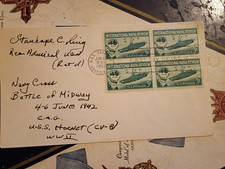 Stanhope C. Ring
Rear Admiral USN
(Ret'd)
Navy Cross
Battle of Midway
4-6 June 1942
C.A.G.
U.S.S. Hornet (CV-8)
WWII
INTERNATIONAL NAVAL REVIEW
INTERNATIONAL NAVAL REVIEW
INTERNATIONAL NAVAL REVIEW
INTERNATIONAL NAVAL REVIEW